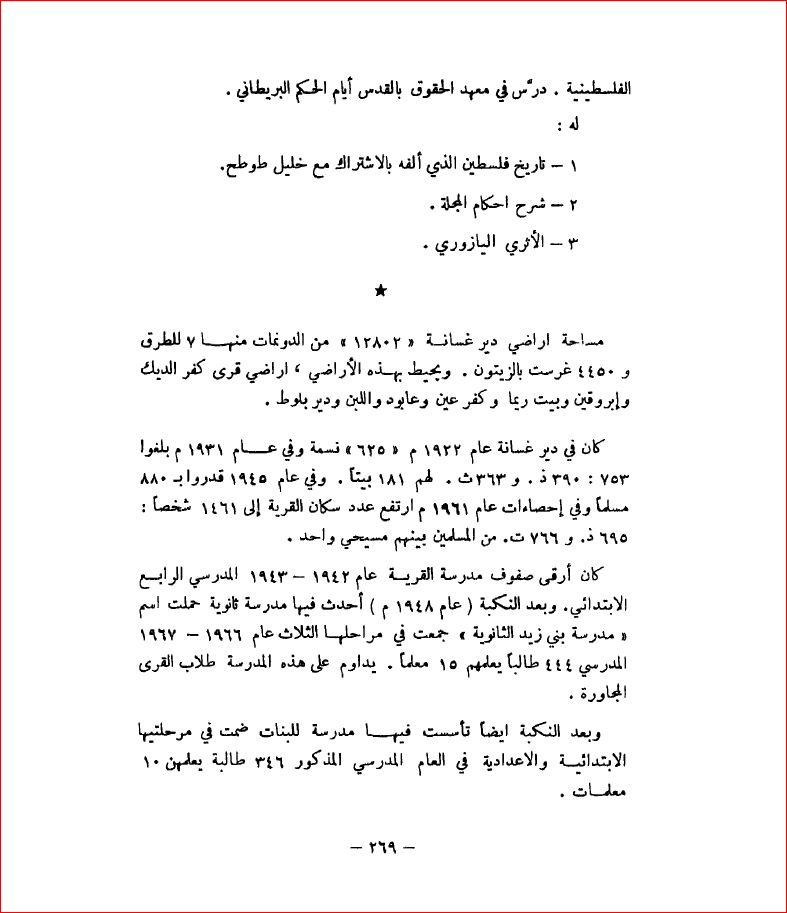 الفلسطينية . درّس في معهد الحقوق بالقدس أيام الحكم البريطاني .
له :
١ – تاريخ فلسطين الذي ألفه بالاشتراك مع خليل طوطح.
٢ – شرح احكام المجلة .
٣ – الأثري اليازوري .
★
مساحة اراضي دير غسانة « ١٢٨٠٢ » من الدونمات منها ٧ للطرق
و ٤٤٥٠ غرست بالزيتون . ويحيط بهذه الأراضي ، اراضي قرى كفر الديك
وإبروقين وبيت ريما وكفر عين وعابود واللبن ودير بلوط .
كان في دير غسانة عام ١٩٢٢ م « ٦٢٥ » نسمة وفي عام ١٩٣١ م بلغوا
٧٥٣ : ٣٩٠ ذ . و ٣٦٣ ث . لهم ١٨١ بيتاً . وفي عام ١٩٤٥ قدروا بـ ٨٨٠
مسلماً وفي إحصاءات عام ١٩٦١ م ارتفع عدد سكان القرية إلى ١٤٦١ شخصاً :
٦٩٥ ذ. و ٧٦٦ ت. من المسلمين بينهم مسيحي واحد .
كان أرقى صفوف مدرسة القرية عام ١٩٤٢ – ١٩٤٣ المدرسي الرابع
الابتدائي. وبعد النكبة ( عام ١٩٤٨ م ) أحدث فيها مدرسة ثانوية حملت اسم
« مدرسة بني زيد الثانوية » جمعت في مراحلها الثلاث عام ١٩٦٦ – ١٩٦٧
المدرسي ٤٤٤ طالباً يعلمهم ١٥ معلماً . يداوم على هذه المدرسة طلاب القرى
المجاورة .
وبعد النكبة ايضاً تأسست فيها مدرسة للبنات ضمت في مرحلتيها
الابتدائية والاعدادية في العام المدرسي المذكور ٣٤٦ طالبة يعلمهن ١٠
معلمات .
– ٢٦٩ –